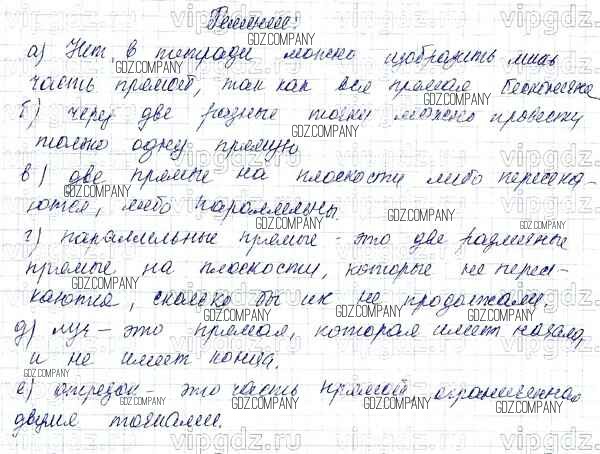 Решение:
а) Нет, в тетради можно изобразить лишь
часть прямой, так как вся прямая бесконечна
б) через две разные точки можно провести
только одну прямую
в) две прямые на плоскости либо пересека-
ются, либо параллельны.
г) параллельные прямые - это две различные
прямые на плоскости, которые не перес-
каются, сколько бы их не продолжали.
д) луч - это прямая, которая имеет начало,
и не имеет конца.
е) отрезок - это часть прямой ограниченная
двумя точками.